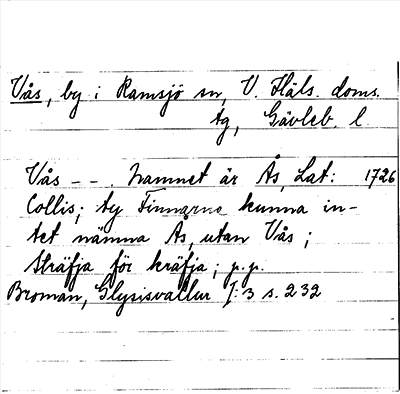 Vås, by i Ramsjö sn, V. Häls. doms.
tg, Gävleb. l.
Vås - - . Namnet är Ås, Lat: 1726
Collis; ty Finnarne kunna in-
tet nämna Ås, utan Vås;
Sträfja för kräfja; p.p.
Broman, Glysisvallur I: 3 s. 232